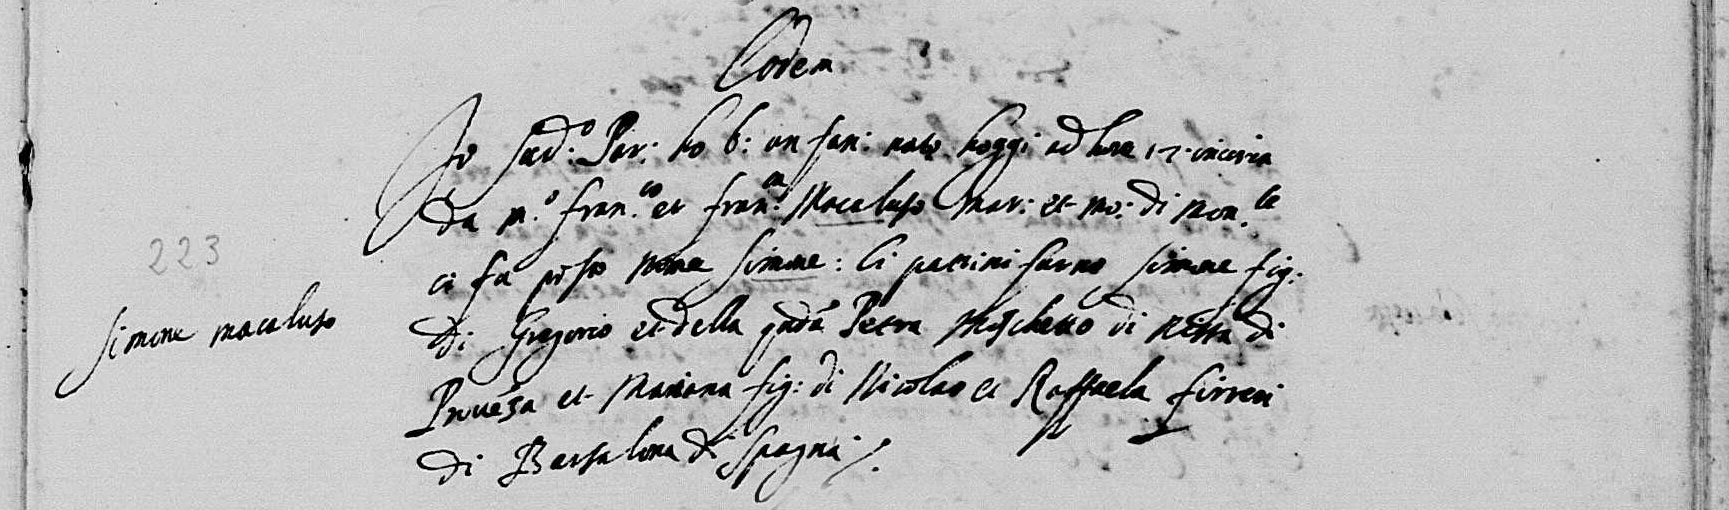 Eodem
Io sud.o Par: ho b: un fan: nato hoggi ad hore 12 incirca
da m.o Fran.co et Fran.ca Macaluso Mar: et mo: di Mon.le
ci fu posto nome Simone: li patrini furno Simone fig:
223
di Gregorio et della qudā Petra Moschetto di Nizza di
Simone macaluso
Provēza et Mariana fig: di Nicolao et Raffaela Firreri
di Barsalona di Spagna